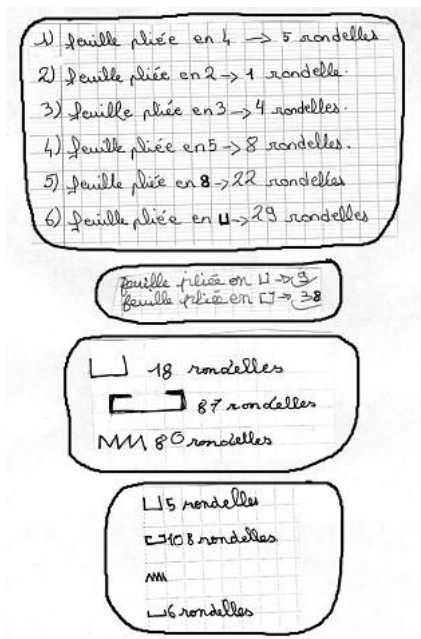 1) feuille pliée en 4 → 5 rondelles
2) feuille pliée en 2 → 1 rondelle.
3) feuille pliée en 3 → 4 rondelles.
4) feuille pliée en 5 → 8 rondelles.
5) feuille pliée en 8 → 22 rondelles
6) feuille pliée en ⊔ → 29 rondelles
feuille pliée en ⊔ → 9
feuille pliée en → 38
18 rondelles
87 rondelles
80 rondelles
5 rondelles
108 rondelles
6 rondelles